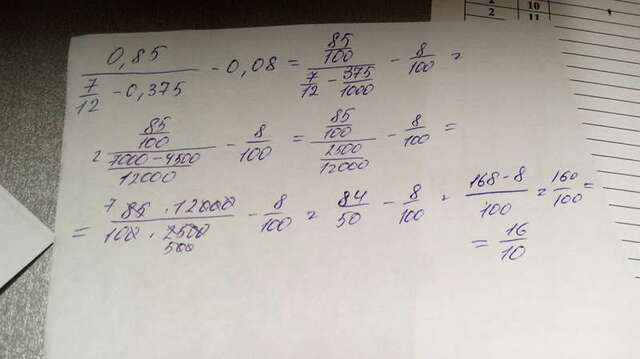 2 10
2 11
0,85 / (7/12 - 0,375) - 0,08 = (85/100) / (7/12 - 375/1000) - 8/100 =
= (85/100) / ((7000 - 4500)/12000) - 8/100 = (85/100) / (2500/12000) - 8/100 =
= (7 85 · 12000) / (100 · 2500 500) - 8/100 = 84/50 - 8/100 = (168 - 8)/100 = 160/100 =
= 16/10